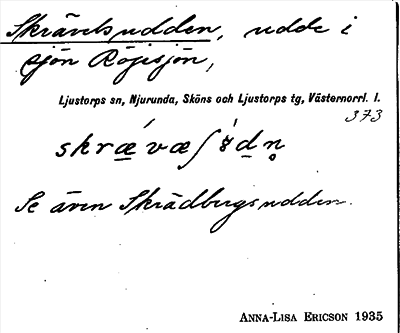 Skrävelsudden, udde i
sjön Röjesjön,
Ljustorps sn, Njurunda, Sköns och Ljustorps tg, Västernorrl. l.
373
Se även Skrädbergsudden.
ANNA-LISA ERICSON 1935